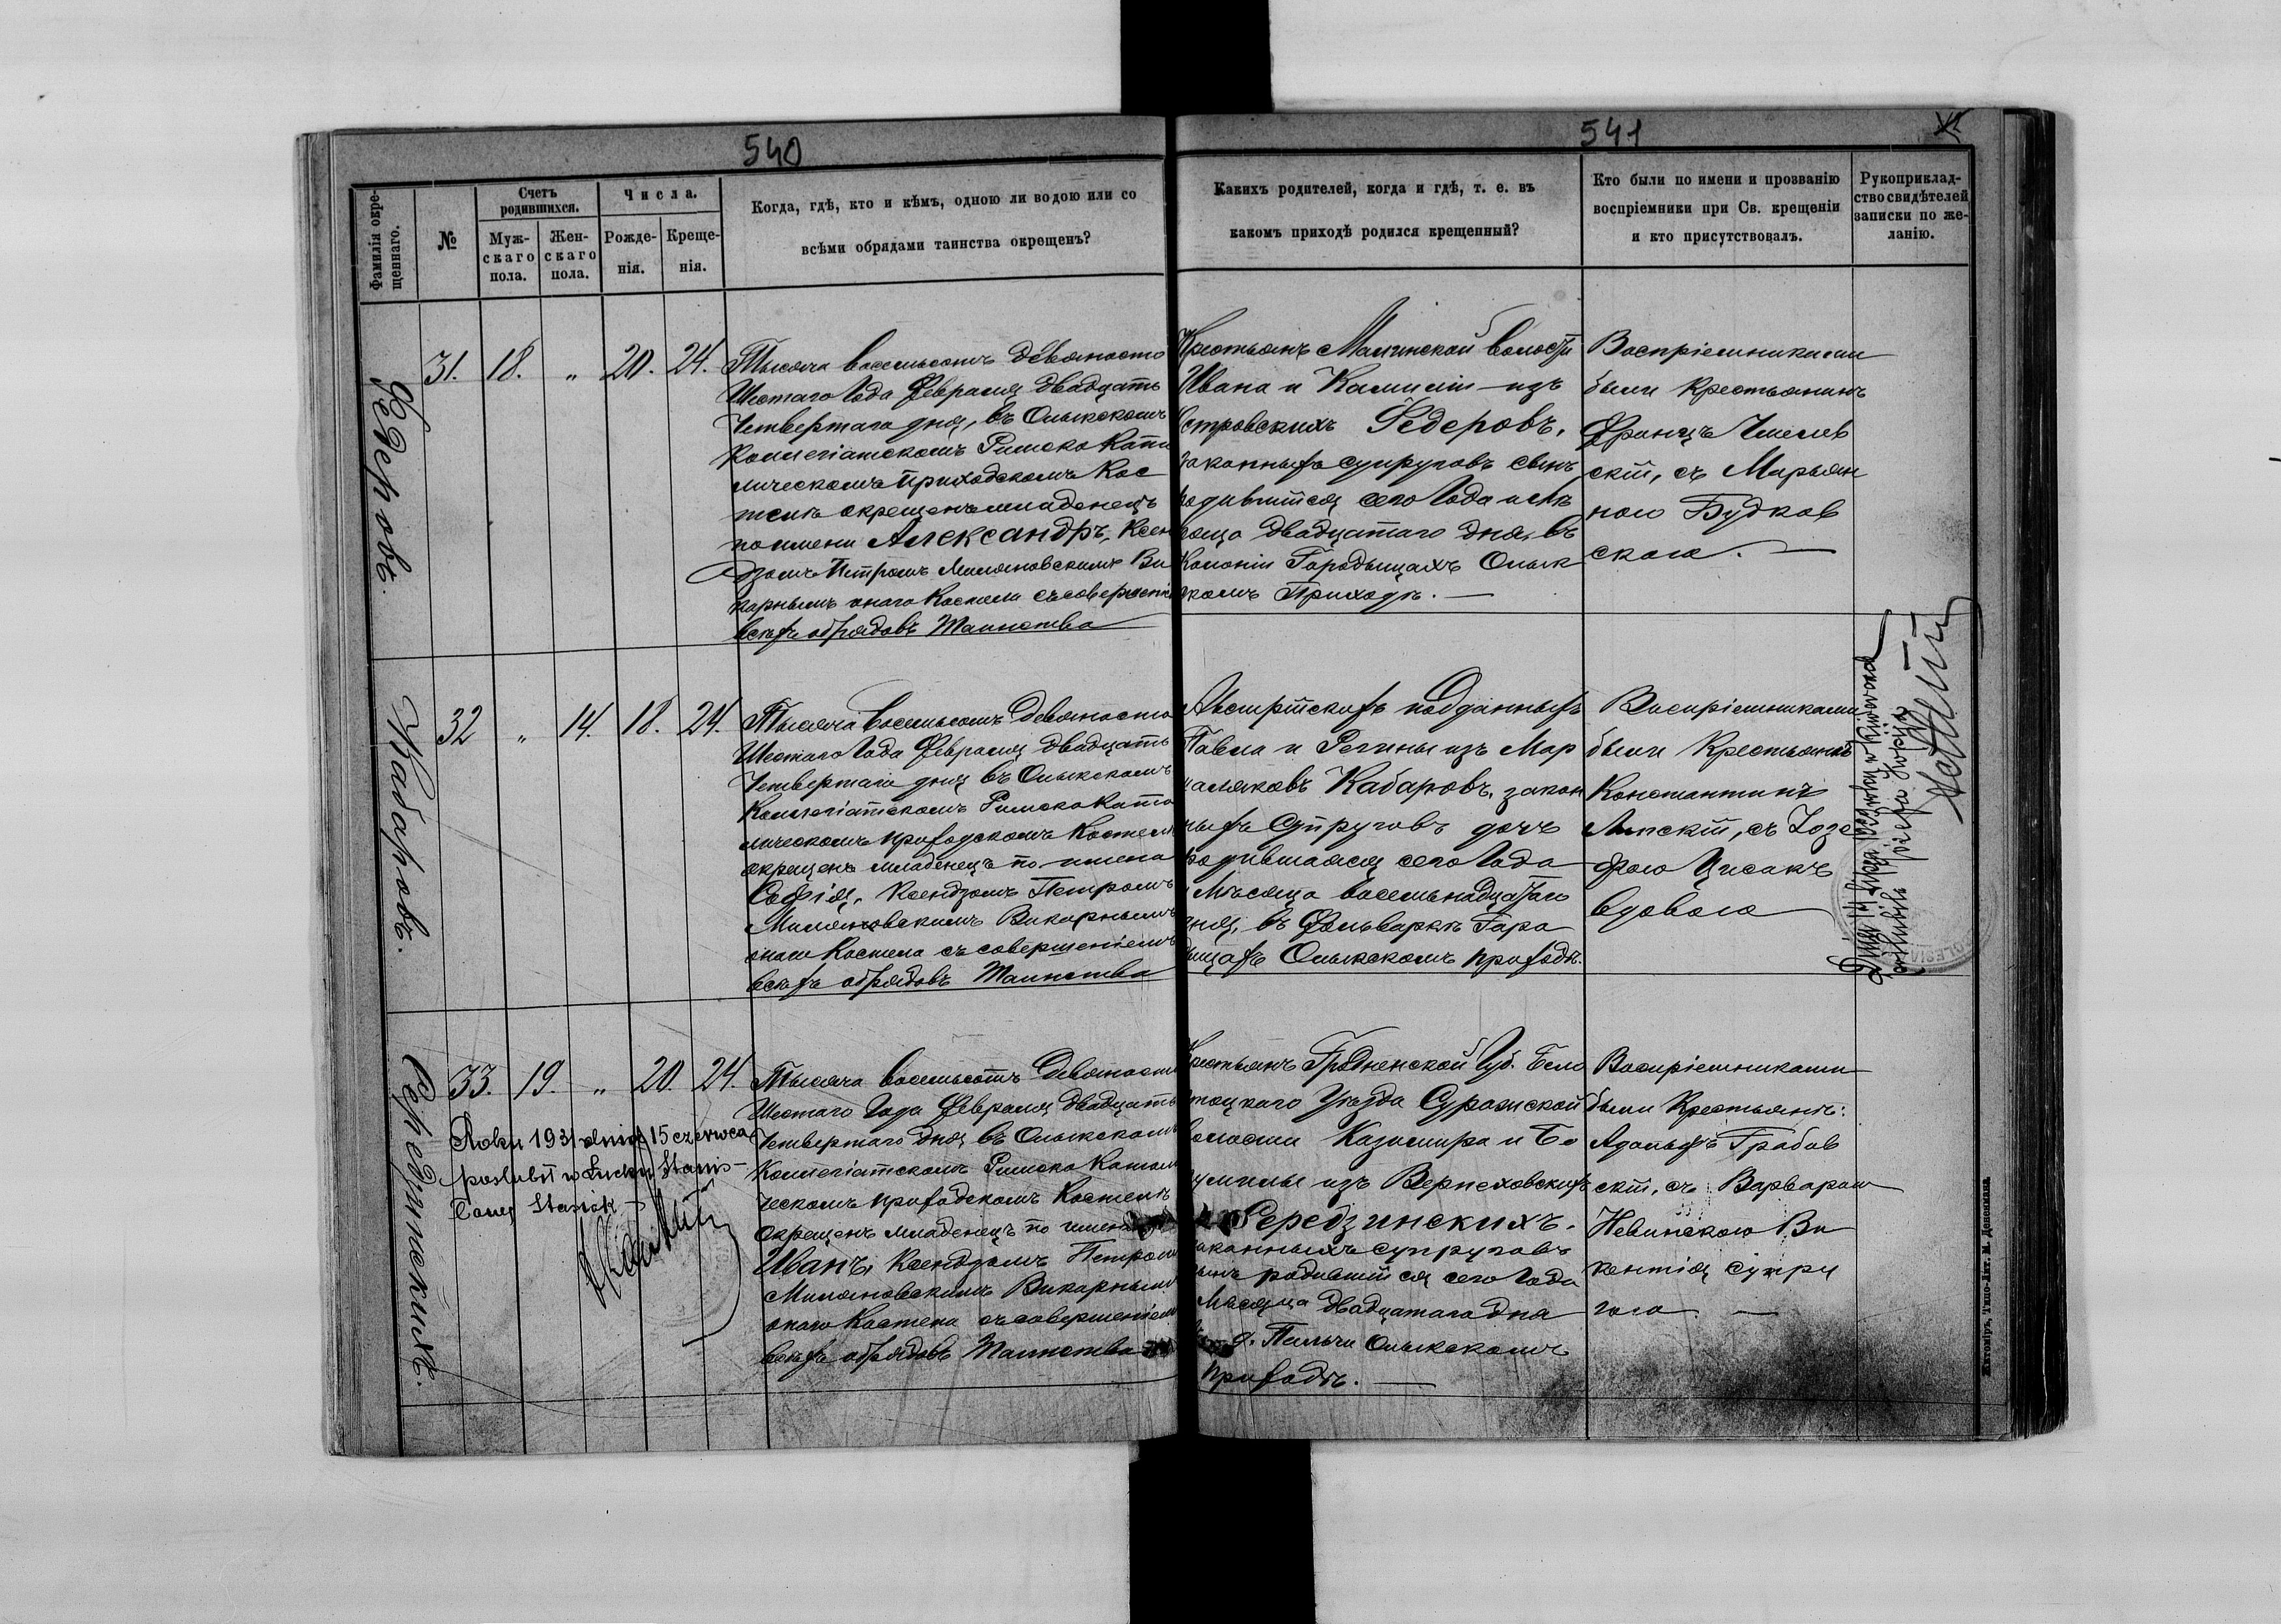 540
541
Фамилія окре-
щеннаго.
№
Счетъ
родившихся.
Муж-
скаго
пола.
Жен-
скаго
пола.
Числа.
Рожде-
нія.
Креще-
нія.
Когда, гдѣ, кто и кѣмъ, одною ли водою или со
всѣми обрядами таинства окрещенъ?
Какихъ родителей, когда и гдѣ, т. е. въ
какомъ приходѣ родился крещенный?
Кто были по имени и прозванію
воспріемники при Св. крещеніи
и кто присутствовалъ.
Рукоприклад-
ство свидѣтелей
записки по же-
ланію.
Федеровъ.
31. 18. „ 20. 24.
Тысяча восемьсотъ девяносто
Шестаго Года Февраля двадцать
Четвертаго дня, въ Олыкскомъ
Коллегіатскомъ Римско Като
лическомъ приходскомъ Кос
телѣ окрещенъ младенецъ
по имени Александръ, Ксен
дзомъ Петромъ Миляновскимъ Ви
карнымъ онаго Костела съ совершені
всѣхъ обрядовъ Таинства
Крестьянъ Малинской волости
Ивана и Камиліи изъ
стровскихъ Федеровъ,
законныхъ супруговъ сынъ
родившійся сего Года и Мѣ
сяца двадцатаго дня, въ
Колоніи Городыщахъ Олык
скомъ Приходѣ.
Воспріемниками
были Крестьянинъ
Францъ Чмелев
скій, съ Марьян
ною Будков
скою.
Кабаровъ.
32 „ 14. 18. 24.
Тысяча восемьсотъ девяносто
Шестаго Года Февраля двадцать
Четвертаго дня въ Олыкскомъ
Коллегіатскомъ Римско Като
лическомъ приходскомъ Костелѣ
окрещенъ младенецъ по имени
Софія, Ксендзомъ Петромъ
Миляновскимъ Викарнымъ
онаго Костела съ совершеніемъ
всѣхъ обрядовъ Таинства
Австрійскихъ подданныхъ
Павла и Регины изъ Мар
Кабаровъ, закон
ныхъ Супруговъ дочь
родившаяся сего Года
и Мѣсяца восемьнадцатаго
дня, въ Фольваркѣ Горо
дыщахъ Олыкскомъ приходѣ.
Воспріемниками
были Крестьянъ
Константинъ
Липскій, съ Іозе
фою Цисакъ
вдовою
Середзинскихъ.
33. 19. „ 20. 24.
Roku 1931 dnia 15 czerwca
poślubił w Łucku Stanis-
ławę Stasiak
Тысяча восемьсотъ девяносто
Шестаго Года Февраля двадцать
Четвертаго дня въ Олыкскомъ
Коллегіатскомъ Римско Католи
ческомъ приходскомъ Костелѣ
окрещенъ младенецъ по имени
Иванъ, Ксендзомъ Петромъ
Миляновскимъ Викарнымъ
онаго Костела съ совершеніемъ
всѣхъ обрядовъ Таинства
Крестьянъ Гродненской Губ. Бело
стоцкаго Уѣзда Суражской
волости Казимира и Бо
гумилы изъ Верпеховскихъ
Середзинскихъ.
законныхъ супруговъ
сынъ родившійся сего Года
и Мѣсяца двадцатаго дня
д. Пельчи Олыкскомъ
приходѣ.
Воспріемниками
были Крестьянъ:
Адольфъ Грабов
скій, съ Варварою
Невинскою Ви
кентія супру
гою.
Житоміръ, Типо-Лит. М. Дененмана.